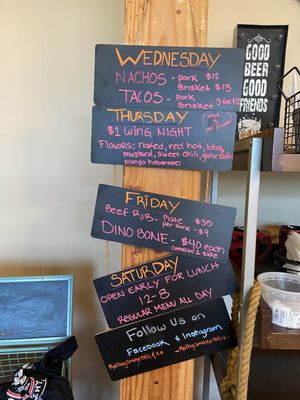 WEDNESDAY
NACHOS - pork $12
Brisket $13
TACOS - pork
Brisket 3 for
THURSDAY
$1 WING NIGHT
Flavors: naked, red hot, bbq,
mustard, sweet chili, garlic
mango habanero
FRIDAY
BEEF RIBS - Plate $35
per bone - $9
DINO BONE - $40 each
comes w/ 2 sides
SATURDAY
OPEN EARLY FOR LUNCH
12-8
REGULAR MENU ALL DAY
Follow Us on
Facebook & Instagram
GOOD
BEER
GOOD
FRIENDS